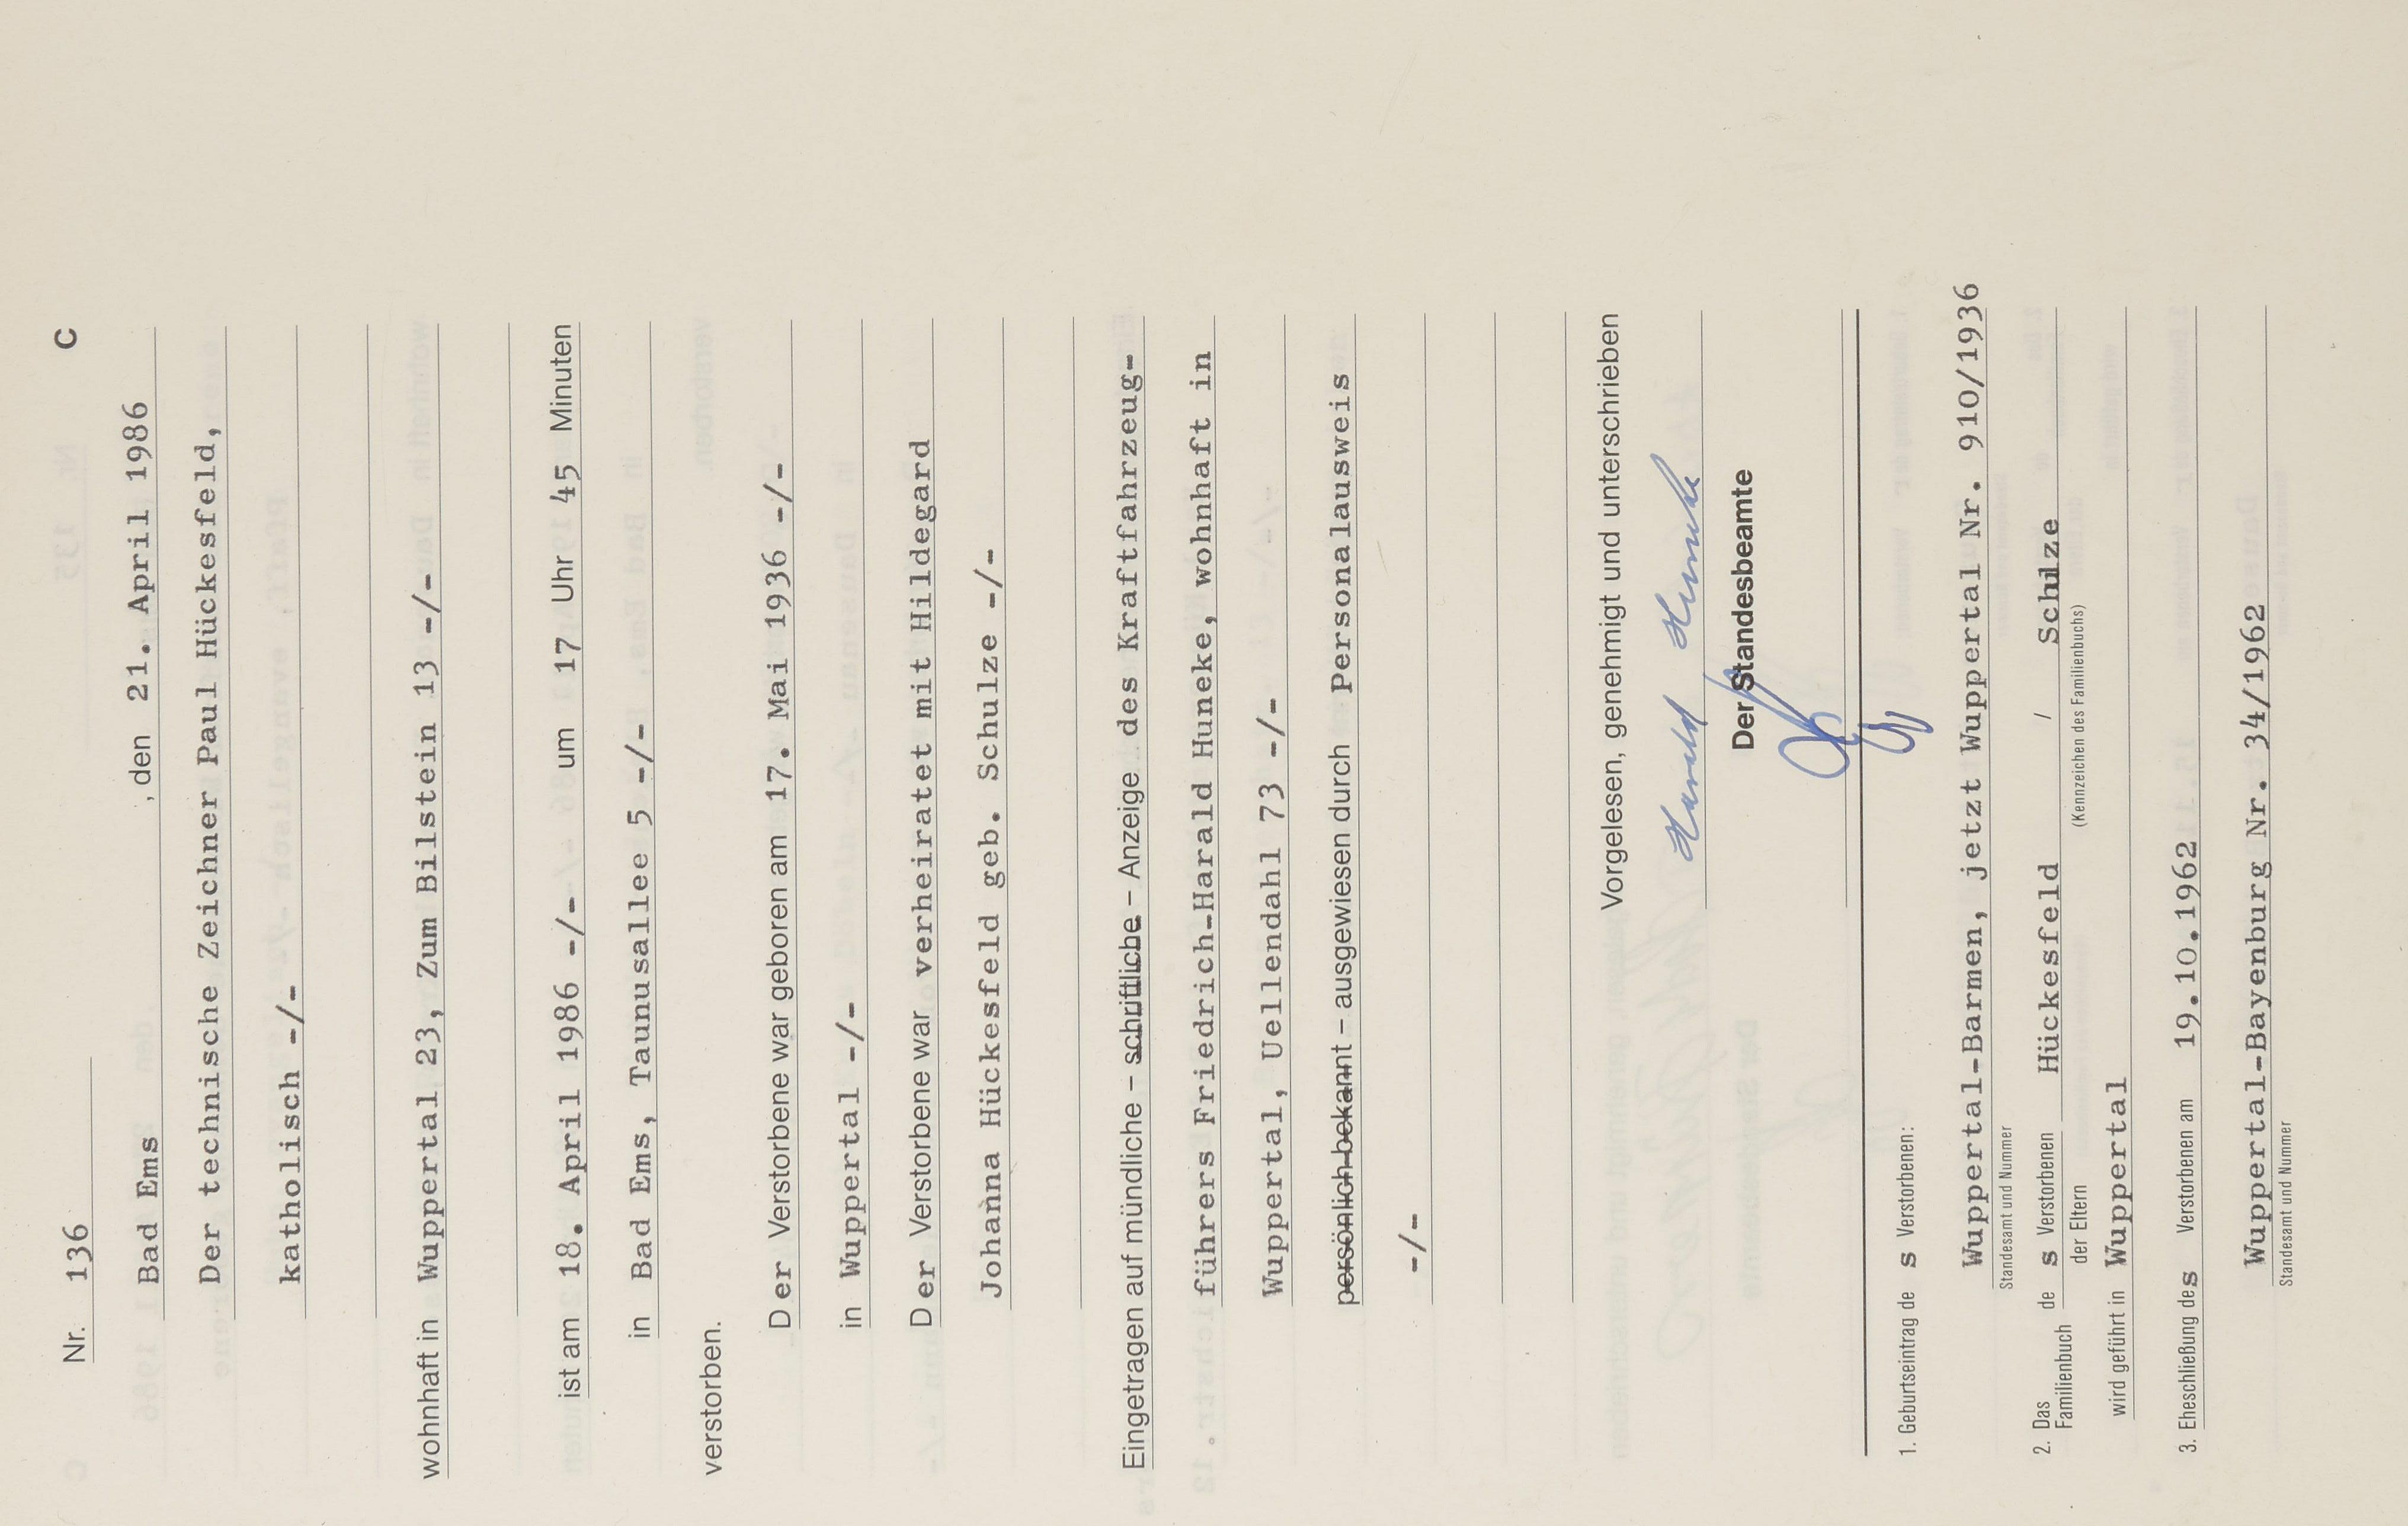 Nr. 136 C
Bad Ems , den 21. April 1986
Der technische Zeichner Paul Hückesfeld,
katholisch -/-
wohnhaft in Wuppertal 23, Zum Bilstein 13 -/-
ist am 18. April 1986 -/- um 17 Uhr 45 Minuten
in Bad Ems, Taunusallee 5 -/-
verstorben.
Der Verstorbene war geboren am 17. Mai 1936 -/-
in Wuppertal -/-
Der Verstorbene war verheiratet mit Hildegard
Johanna Hückesfeld geb. Schulze -/-
Eingetragen auf mündliche – schriftliche – Anzeige des Kraftfahrzeug-
führers Friedrich-Harald Huneke, wohnhaft in
Wuppertal, Uellendahl 73 -/-
persönlich bekannt – ausgewiesen durch Personalausweis
-/-
Vorgelesen, genehmigt und unterschrieben
Harald Huneke
Der Standesbeamte
1. Geburtseintrag des Verstorbenen:
Wuppertal-Barmen, jetzt Wuppertal Nr. 910/1936
Standesamt und Nummer
2. Das Familienbuch des Verstorbenen Hückesfeld / Schulze
der Eltern (Kennzeichen des Familienbuchs)
wird geführt in Wuppertal
3. Eheschließung des Verstorbenen am 19.10.1962
Wuppertal-Bayenburg Nr. 34/1962
Standesamt und Nummer